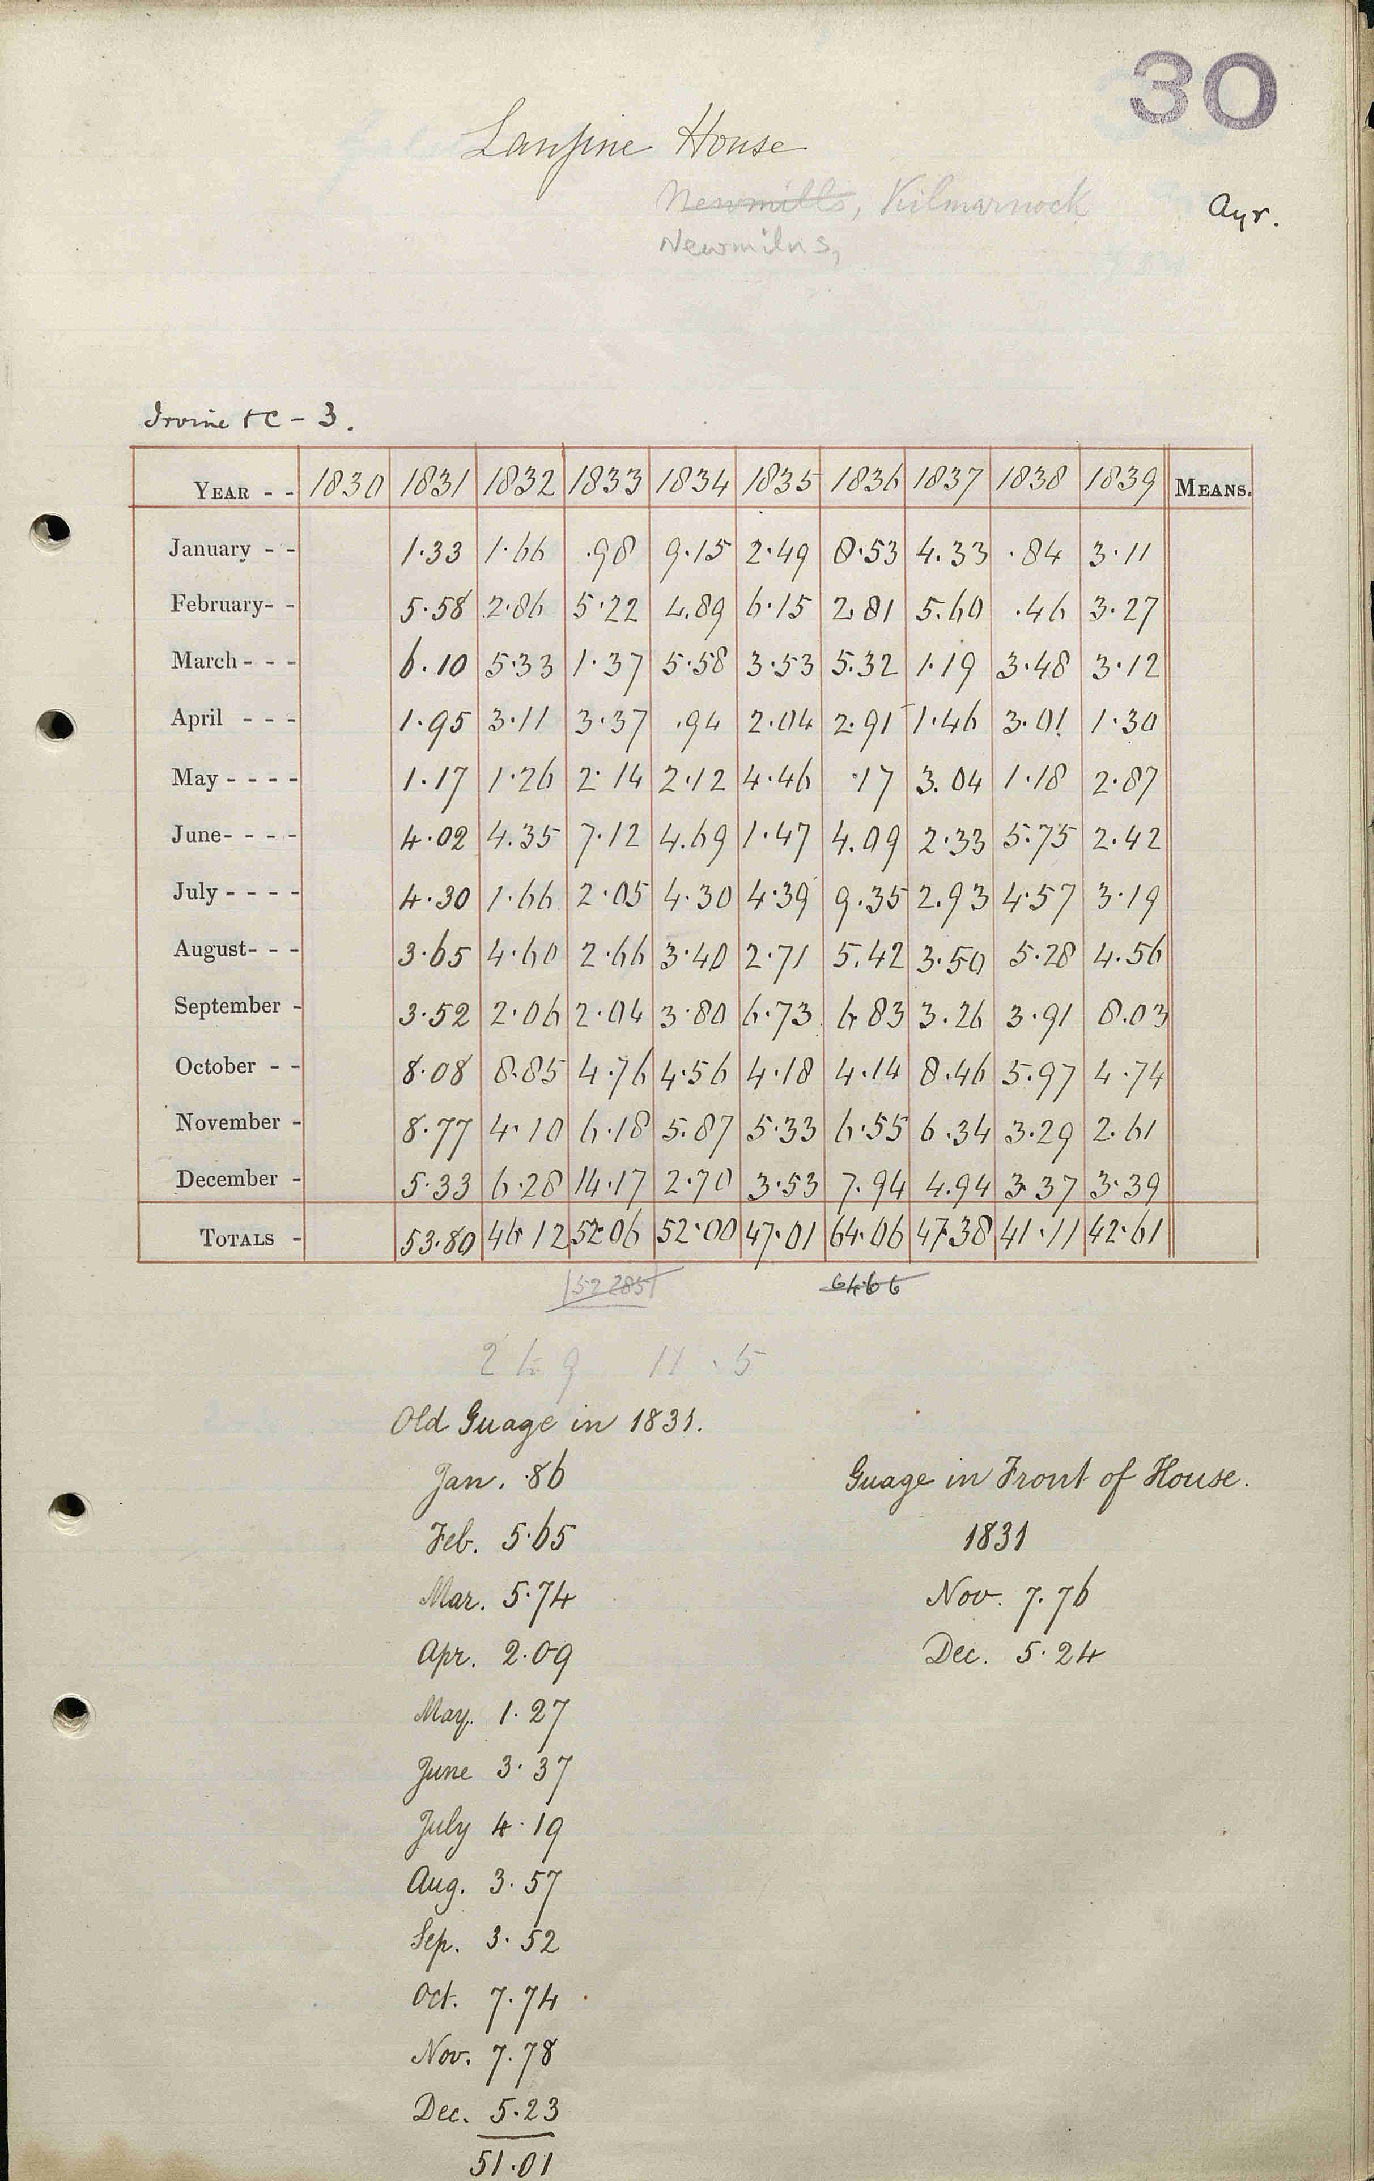 30
Lanfine House
Newmills, Kilmarnock
Ayr.
Newmilns,
Irvine &c - 3.
YEAR - - 1830 1831 1832 1833 1834 1835 1836 1837 1838 1839 MEANS.
January - - 1.33 1.66 .98 9.15 2.49 8.53 4.33 .84 3.11
February - - 5.58 2.86 5.22 4.89 6.15 2.81 5.60 .46 3.27
March - - - 6.10 5.33 1.37 5.58 3.53 5.32 1.19 3.48 3.12
April - - - 1.95 3.11 3.37 .94 2.04 2.91 1.46 3.01 1.30
May - - - - 1.17 1.26 2.14 2.12 4.46 .17 3.04 1.18 2.87
June - - - - 4.02 4.35 7.12 4.69 1.47 4.09 2.33 5.75 2.42
July - - - - 4.30 1.66 2.05 4.30 4.39 9.35 2.93 4.57 3.19
August - - - 3.65 4.60 2.66 3.40 2.71 5.42 3.50 5.28 4.56
September - 3.52 2.06 2.04 3.80 6.73 6.83 3.26 3.91 8.03
October - - 8.08 8.85 4.76 4.56 4.18 4.14 8.46 5.97 4.74
November - 8.77 4.10 6.18 5.87 5.33 6.55 6.34 3.29 2.61
December - 5.33 6.28 14.17 2.70 3.53 7.94 4.94 3.37 3.39
TOTALS - 53.80 46.12 52.06 52.00 47.01 64.06 47.38 41.11 42.61
52 285 64.66
Old Guage in 1831.
Jan. .86
Guage in Front of House.
Feb. 5.65
1831
Mar. 5.74
Nov. 7.76
Apr. 2.09
Dec. 5.24
May. 1.27
June 3.37
July 4.19
Aug. 3.57
Sep. 3.52
Oct. 7.74
Nov. 7.78
Dec. 5.23
51.01